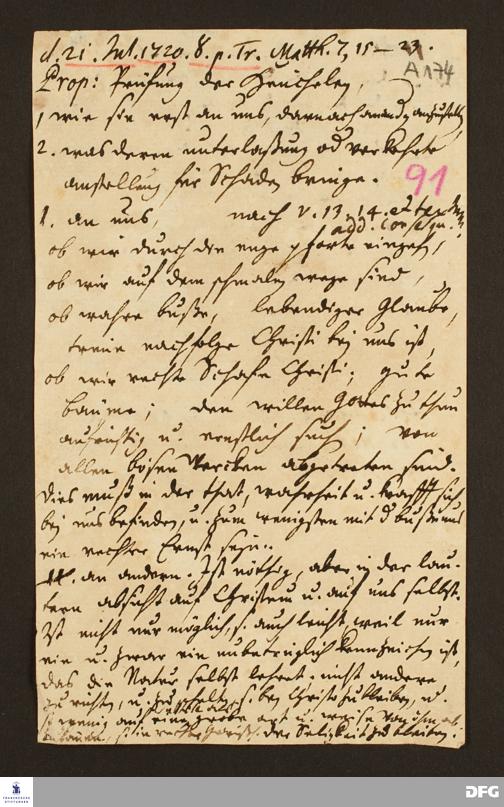 d. 21. Jul. 1720. 8. p. Tr. Matth. 7, 15 – 23.
A 174
Prop: Prüfung der Heucheley,
1, wie sie erst an uns, darnach an and. anzustellen,
2. was deren unterlaßung od verkehrte
anstellung für Schaden bringe.
91
1. an uns, nach v. 13. 14. et
add.
ob wir durch die enge pforte eingehen,
ob wir auf dem schmalen wege sind,
ob wahre buße, lebendiger Glaube,
treue nachfolge Christi bey uns ist,
ob wir rechte Schafe Christi; gute
bäume; den willen Gottes zu thun
aufrichtig u. ernstlich such; von
allen bösen Wercken abgetreten sind.
Dies muß in der that, wahrheit u. krafft sich
bey uns befinden, u. zum wenigsten mit d buße uns
ein rechter Ernst seyn.
II. an andern. Ist nöthig, aber in der lau-
tern absicht auf Christum u. auf uns selbst.
Ist nicht nur möglich, s. auch leicht, weil nur
ein u. zwar ein unbetrüglich kennzeichen ist,
das die Natur selbst lehret. nicht andere
zu richten, u. s. bey Christo zu bleiben, u.
so wenig auf eine grobe art u. weise von ihm
der Seligkeit zu bleiben.
FRANCKESCHE STIFTUNGEN
DFG